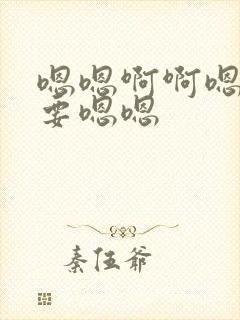 嗯嗯啊啊嗯
要嗯嗯
秦伍爷